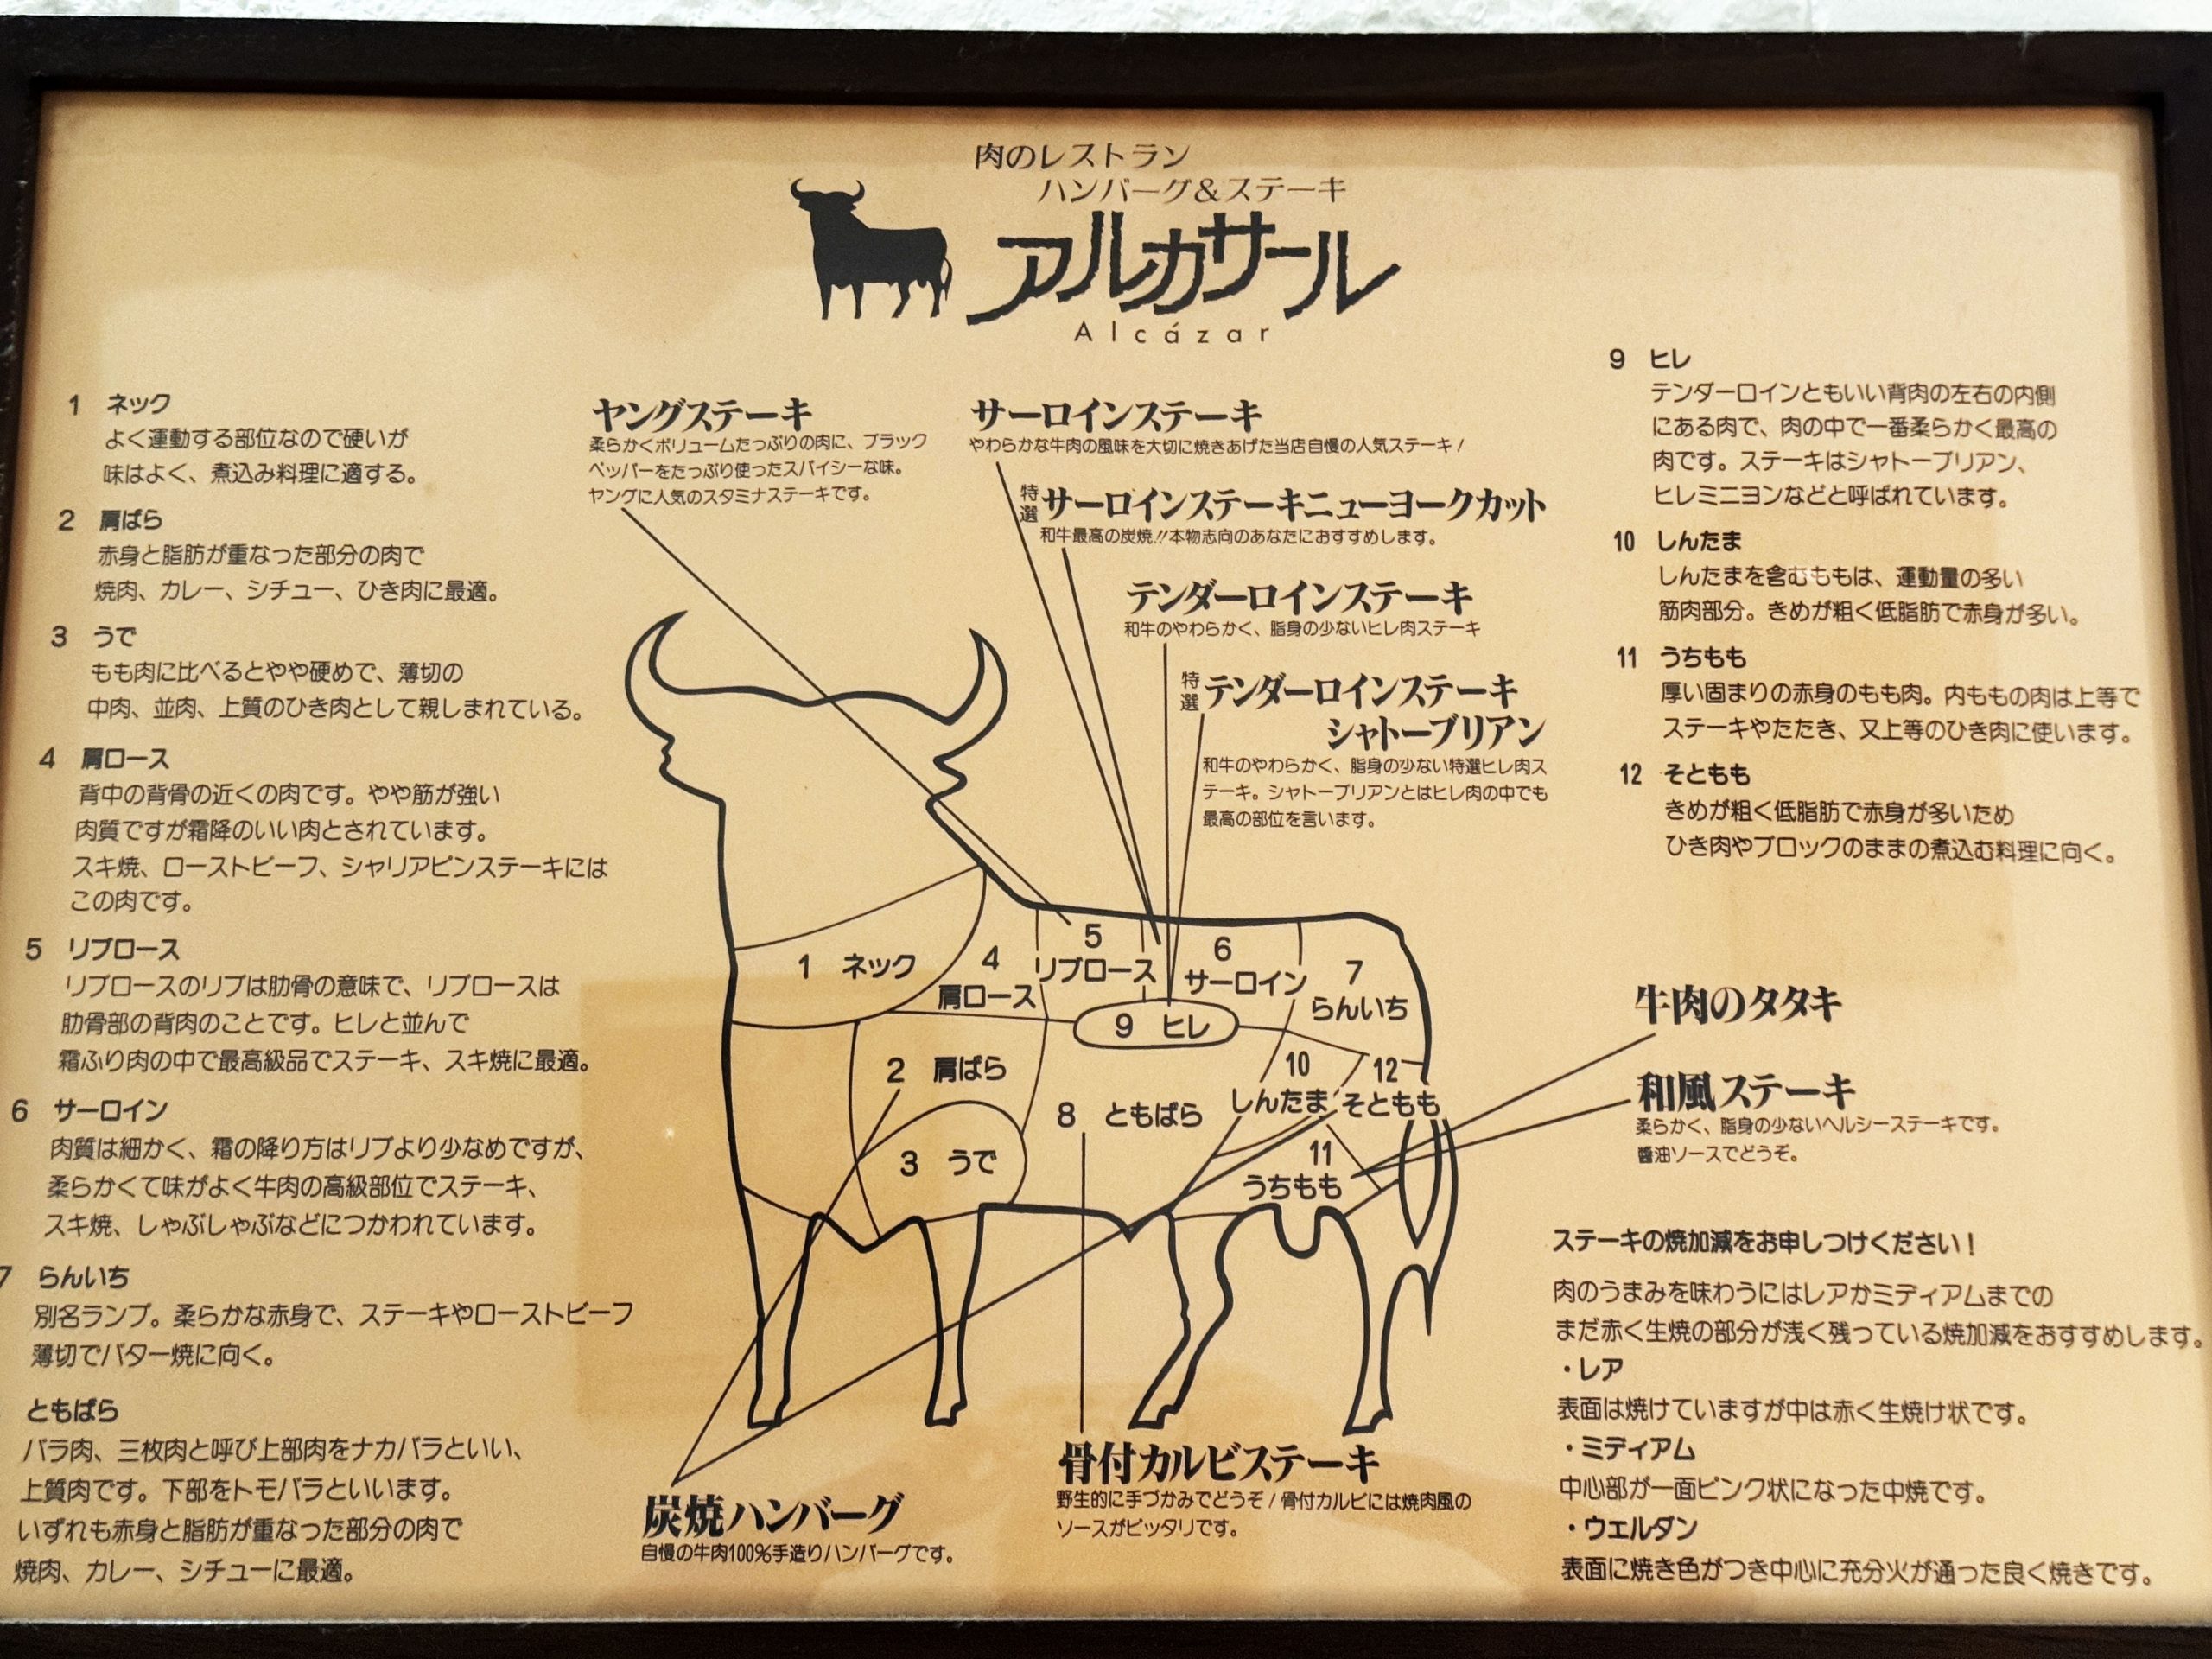 肉のレストラン
ハンバーグ&ステーキ
アルカサール
Alcázar
1 ネック
よく運動する部位なので硬いが
味はよく、煮込み料理に適する。
2 肩ばら
赤身と脂肪が重なった部分の肉で
焼肉、カレー、シチュー、ひき肉に最適。
3 うで
もも肉に比べるとやや硬めで、薄切の
中肉、並肉、上質のひき肉として親しまれている。
4 肩ロース
背中の背骨の近くの肉です。やや筋が強い
肉質ですが霜降のいい肉とされています。
スキ焼、ローストビーフ、シャリアピンステーキには
この肉です。
5 リブロース
リブロースのリブは肋骨の意味で、リブロースは
肋骨部の背肉のことです。ヒレと並んで
霜ふり肉の中で最高級品でステーキ、スキ焼に最適。
6 サーロイン
肉質は細かく、霜の降り方はリブより少なめですが、
柔らかくて味がよく牛肉の高級部位でステーキ、
スキ焼、しゃぶしゃぶなどにつかわれています。
7 らんいち
別名ランプ。柔らかな赤身で、ステーキやローストビーフ
薄切でバター焼に向く。
ともばら
バラ肉、三枚肉と呼び上部肉をナカバラといい、
上質肉です。下部をトモバラといいます。
いずれも赤身と脂肪が重なった部分の肉で
焼肉、カレー、シチューに最適。
ヤングステーキ
柔らかくボリュームたっぷりの肉に、ブラック
ペッパーをたっぷり使ったスパイシーな味。
ヤングに人気のスタミナステーキです。
サーロインステーキ
やわらかな牛肉の風味を大切に焼きあげた当店自慢の人気ステーキ!
特選 サーロインステーキニューヨークカット
和牛最高の炭焼!!本物志向のあなたにおすすめします。
テンダーロインステーキ
和牛のやわらかく、脂身の少ないヒレ肉ステーキ
特選 テンダーロインステーキ
シャトーブリアン
和牛のやわらかく、脂身の少ない特選ヒレ肉ス
テーキ。シャトーブリアンとはヒレ肉の中でも
最高の部位を言います。
1 ネック
4
肩ロース
5
リブロース
6
サーロイン
7
らんいち
9 ヒレ
2 肩ばら
3 うで
8 ともばら
10
しんたま
12
そともも
11
うちもも
炭焼ハンバーグ
自慢の牛肉100%手造りハンバーグです。
骨付カルビステーキ
野生的に手づかみでどうぞ!骨付カルビには焼肉風の
ソースがピッタリです。
9 ヒレ
テンダーロインともいい背肉の左右の内側
にある肉で、肉の中で一番柔らかく最高の
肉です。ステーキはシャトーブリアン、
ヒレミニヨンなどと呼ばれています。
10 しんたま
しんたまを含むももは、運動量の多い
筋肉部分。きめが粗く低脂肪で赤身が多い。
11 うちもも
厚い固まりの赤身のもも肉。内ももの肉は上等で
ステーキやたたき、又上等のひき肉に使います。
12 そともも
きめが粗く低脂肪で赤身が多いため
ひき肉やブロックのままの煮込む料理に向く。
牛肉のタタキ
和風ステーキ
柔らかく、脂身の少ないヘルシーステーキです。
醬油ソースでどうぞ。
ステーキの焼加減をお申しつけください!
肉のうまみを味わうにはレアかミディアムまでの
まだ赤く生焼の部分が浅く残っている焼加減をおすすめします。
・レア
表面は焼けていますが中は赤く生焼け状です。
・ミディアム
中心部が一面ピンク状になった中焼です。
・ウェルダン
表面に焼き色がつき中心に充分火が通った良く焼きです。